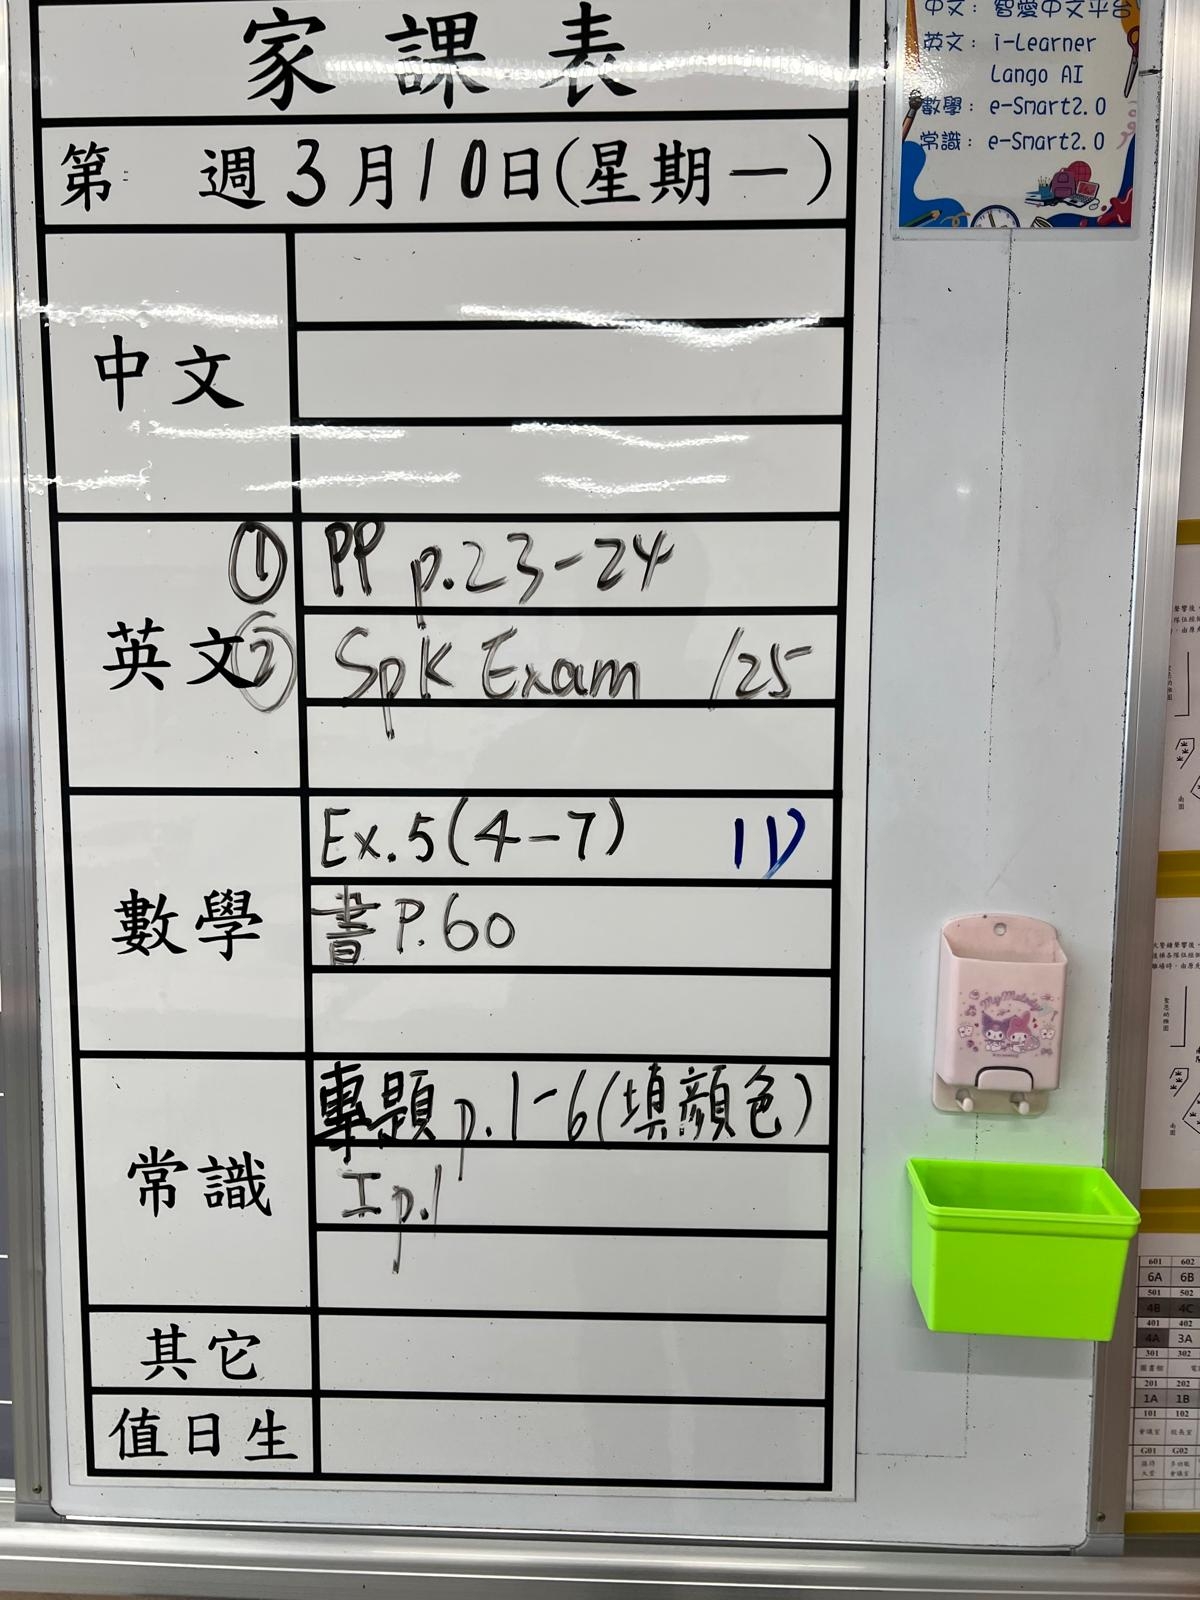 家課表
第 週 3月10日(星期一)
中文
英文
① PP p.23-24
② Spk Exam /25
數學
Ex.5(4-7)
書 P.60
常識
專題 p.1-6(填顏色)
工 p.1
其它
值日生
中文: 智愛中文平台
英文: i-Learner
Lango AI
數學: e-Smart2.0
常識: e-Smart2.0
My Melody
601 602
6A 6B
501 502
4B 4C
401 402
4A 3A
301 302
圖書館
201 202
1A 1B
101 102
會議室 校長室
G01 G02